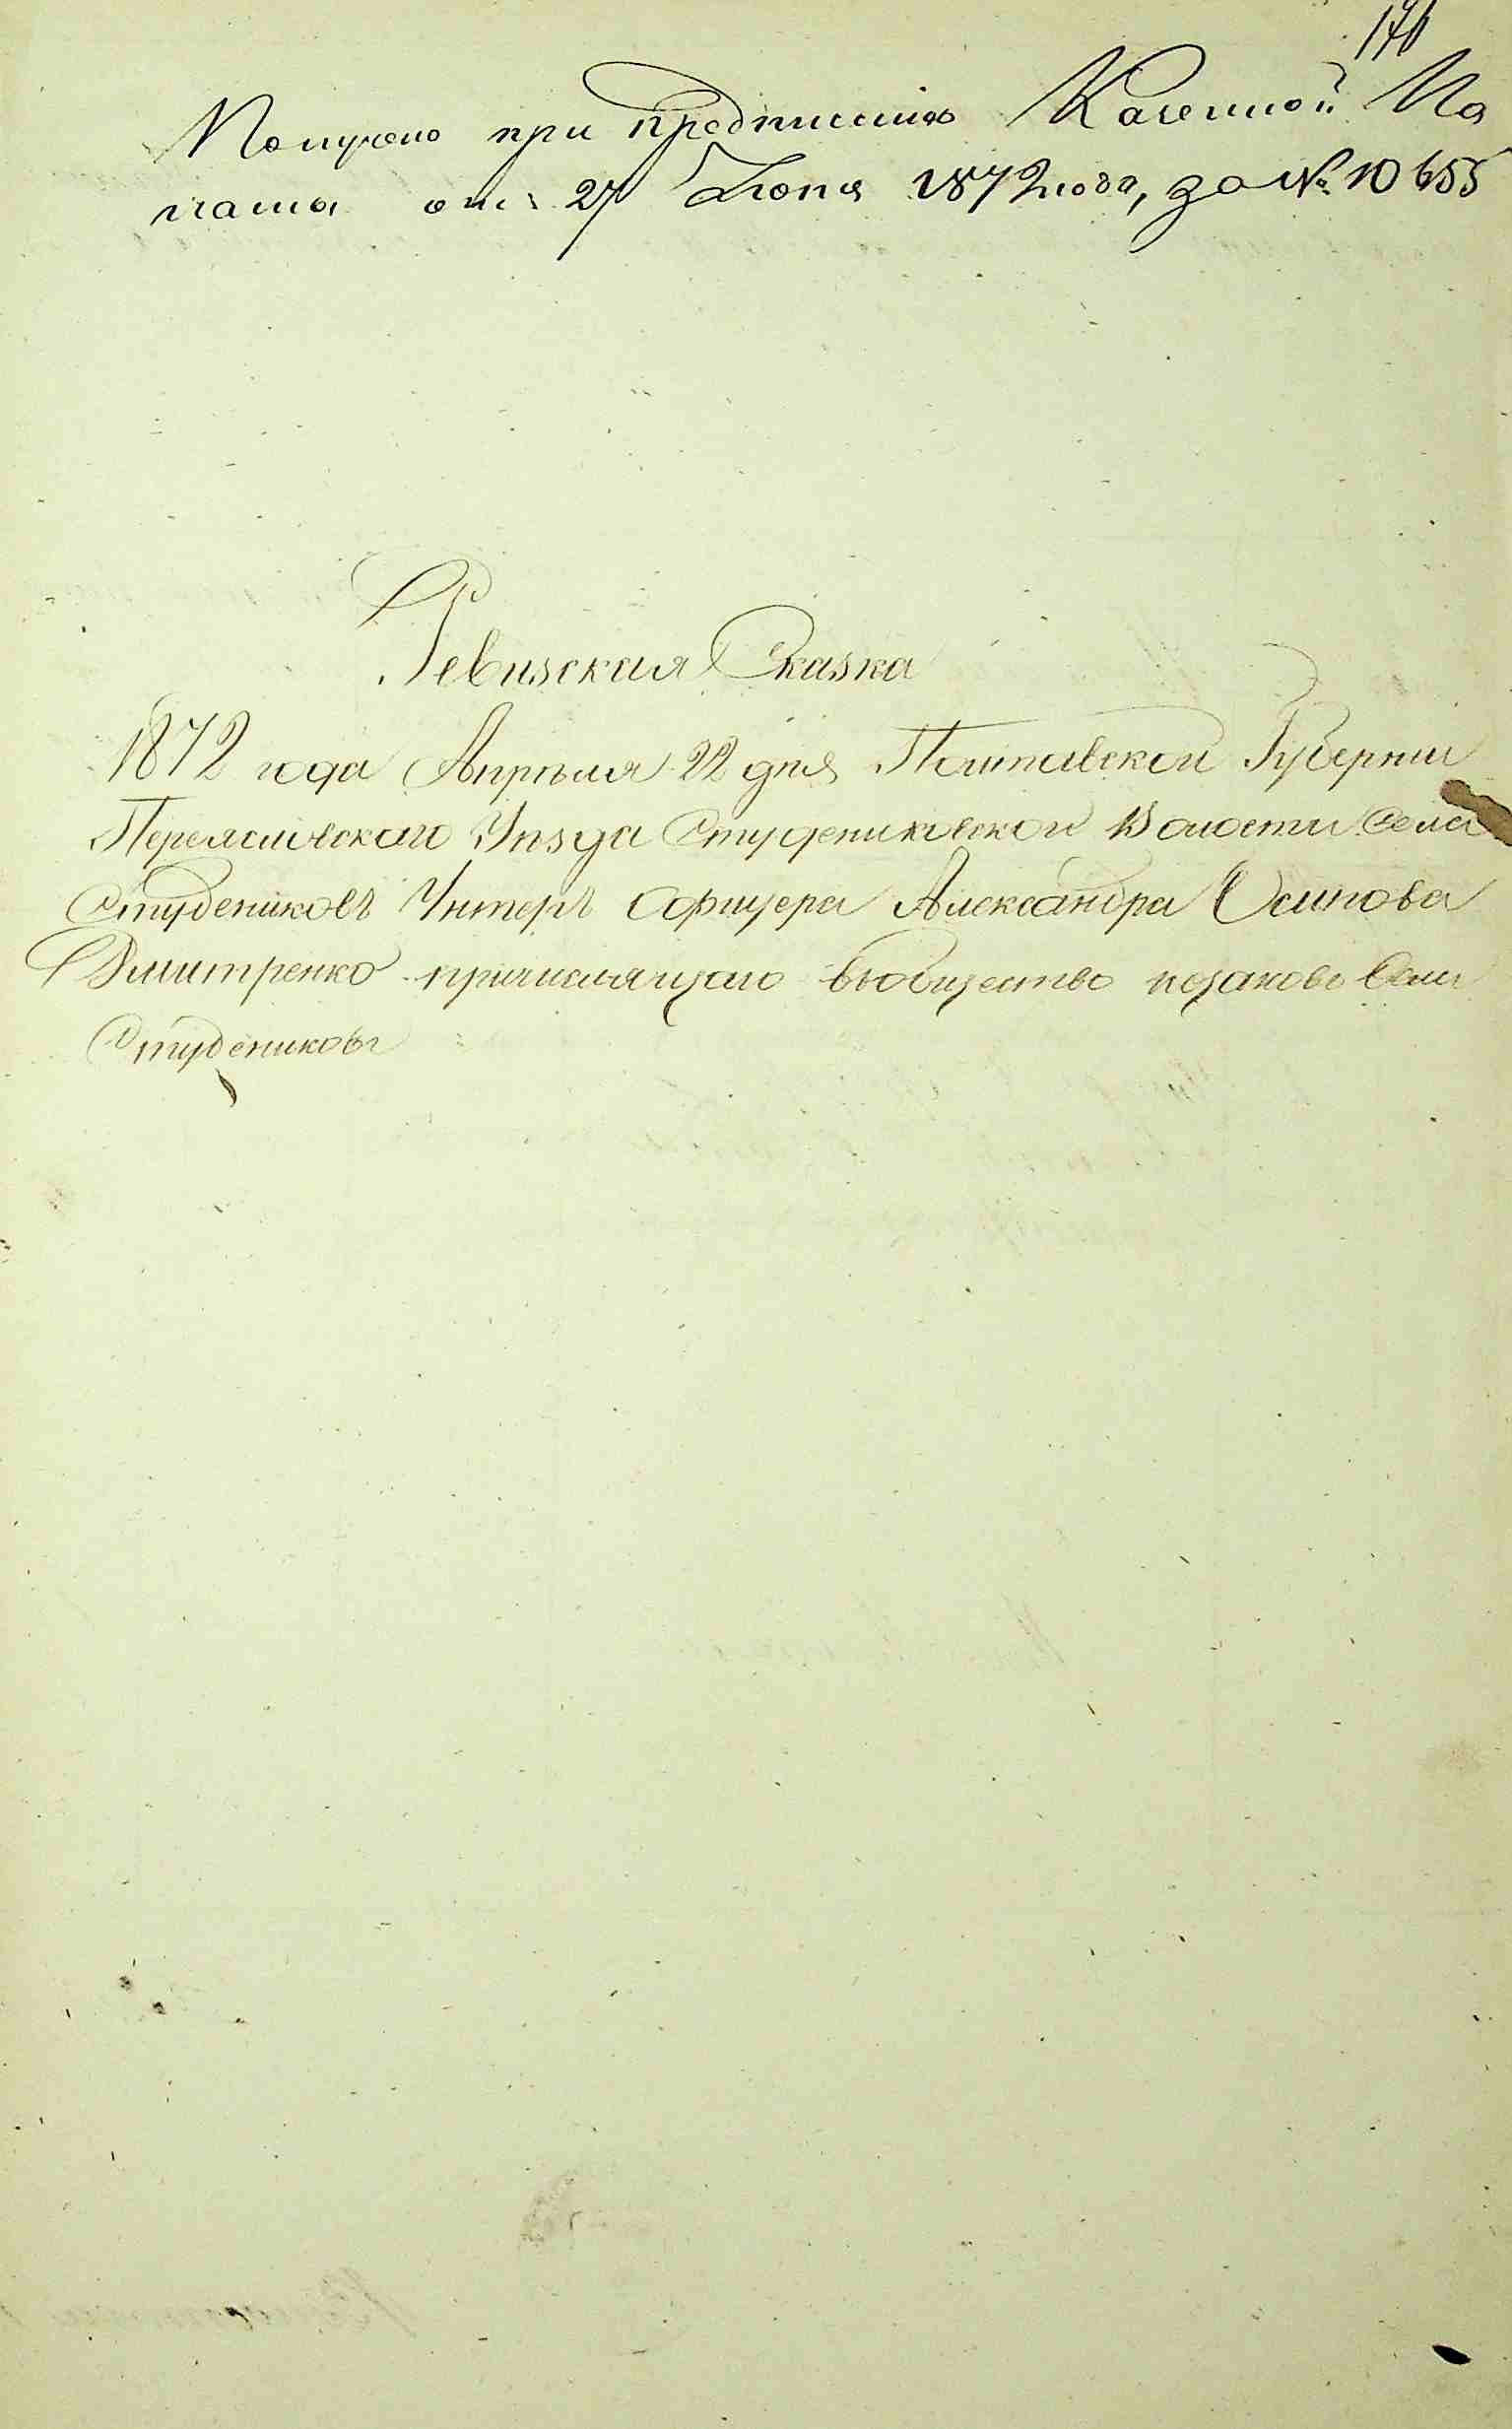 176
Получено при предписании Казенной Па
латы отъ 27 Іюня 1872 года, за № 10655
Ревизская Сказка
1872 года Апрѣля 22 дня Полтавской Губернии
Переяславского Уѣзда Студениковской Волости Села
Студениковъ Унтеръ Офицера Александра Осипова
Дмитренко причисляющаго въобщество козаковъ Села
Студениковъ